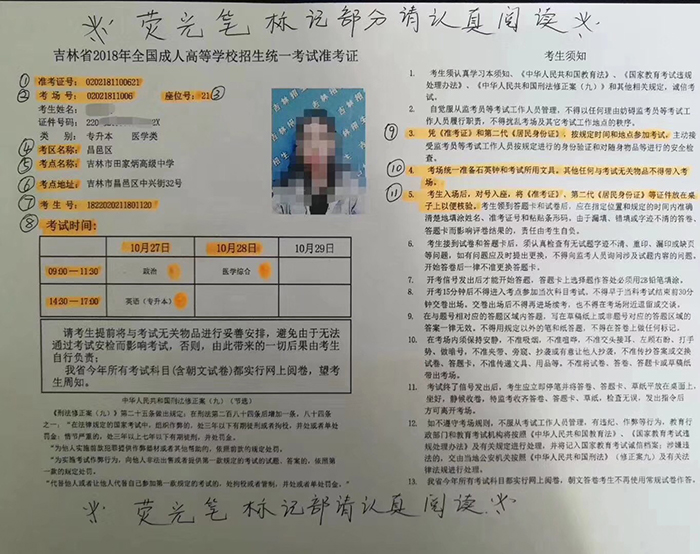 ※ 荧光笔标记部分请认真阅读 ※
吉林省2018年全国成人高等学校招生统一考试准考证
① 准考证号: 0202181100621
② 考 场 号: 0202181 1006 座位号: 21 ③
考生姓名:
证件号码: 220
类 别: 专升本 医学类
④ 考区名称: 昌邑区
⑤ 考点名称: 吉林市田家炳高级中学
⑥ 考点地址: 吉林市昌邑区中兴街32号
⑦ 考 生 号: 1822020211801120
⑧ 考试时间:
10月27日 10月28日 10月29日
09:00－11:30 政治 医学综合
14:30－17:00 英语(专升本)
请考生提前将与考试无关物品进行妥善安排，避免由于无法
通过考试安检而影响考试，否则，由此带来的一切后果由考生
自行负责；
我省今年所有考试科目(含朝文试卷)都实行网上阅卷，望考
生周知。
中华人民共和国刑法修正案（九）（节选）
《刑法修正案（九）》第二十五条做出规定，在刑法第二百八十四条后增加一条，八十四条
之一：“在法律规定的国家考试中，组织作弊的，处三年以下有期徒刑或者拘役，并处或者单处
罚金；情节严重的，处三年以上七年以下有期徒刑，并处罚金。
“为他人实施前款犯罪提供作弊器材或者其他帮助的，依照前款的规定处罚。
“为实施考试作弊行为，向他人非法出售或者提供第一款规定的考试的试题、答案的，依照第
一款的规定处罚。
“代替他人或者让他人代替自己参加第一款规定的考试的，处拘役或者管制，并处或者单处罚金。”
考生须知
1. 考生须认真学习本须知、《中华人民共和国教育法》、《国家教育考试违规
处理办法》、《中华人民共和国刑法修正案（九）》和其他相关规定，诚信考
试。
2. 自觉服从监考员等考试工作人员管理，不得以任何理由妨碍监考员等考试工
作人员履行职责，不得扰乱考场及其它考试工作地点的秩序。
⑨ 3. 凭《准考证》和第二代《居民身份证》、按规定时间和地点参加考试，主动接
受监考员等考试工作人员按规定进行的身份验证和对随身物品等进行的安全检
查。
⑩ 4. 考场统一准备石英钟和考试所用文具。其他任何与考试无关物品不得带入考
场。
⑪ 5. 考生入场后，对号入座，将《准考证》、第二代《居民身份证》等证件放在桌
子上以便核验。考生领到答题卡和试卷后，应在指定位置和规定的时间内准确
清楚地填涂姓名、准考证号和粘贴条形码。由于漏填、错填或字迹不清的答卷、
答题卡而影响评卷结果的，责任由考生自负。
6. 考生接到试卷和答题卡后，须认真检查有无试题字迹不清、重印、漏印或缺页
等问题，如有问题应及时提出更换，不得向监考人员询问涉及试题内容的问题，
开始答卷后一律不准更换答题卡。
7. 开考信号发出后才能开始答题，答题卡上选择题作答处必须用2B铅笔填涂。
8. 开考15分钟后不得进入考点参加当次科目考试，不得早于当科考试结束前30分
钟交卷出场，交卷出场后不得再进场续考，也不得在考场附近逗留或交谈。
9. 在与题号相对应的答题区域内答题，写在草稿纸上或非题号对应的答题区域的
答案一律无效，不得用规定以外的笔和纸答题，不得在答卷上做任何标记。
10. 在考场内须保持安静，不准吸烟，不准喧哗，不准交头接耳、左顾右盼、打手
势、做暗号，不准夹带、旁窥、抄袭或有意让他人抄袭，不准传抄答案或交换
试卷、答题卡，不准传递文具、用品等，不准将试卷、答卷、答题卡或草稿纸
带出考场。
11. 考试终了信号发出后，考生应立即停笔并将答卷、答题卡、草纸平放在桌面上，
坐好，静候收卷，待监考收齐答卷、答题卡、草纸，检查无误，发出指令后
方可离开考场。
12. 如不遵守考场规则，不服从考试工作人员管理，有违纪、作弊等行为，教育行
政部门和教育考试机构将按照《中华人民共和国教育法》、《国家教育考试违规
处理办法》及有关规定进行处理，并将记入国家教育考试诚信档案；涉嫌违
法的，交由当地公安机关按照《中华人民共和国刑法》（修正案九）及有关法
律法规进行处理。
13. 我省今年所有考试科目都实行网上阅卷，朝文答卷考生不再使用常规试卷作答。
※ 荧光笔标记部请认真阅读 ※